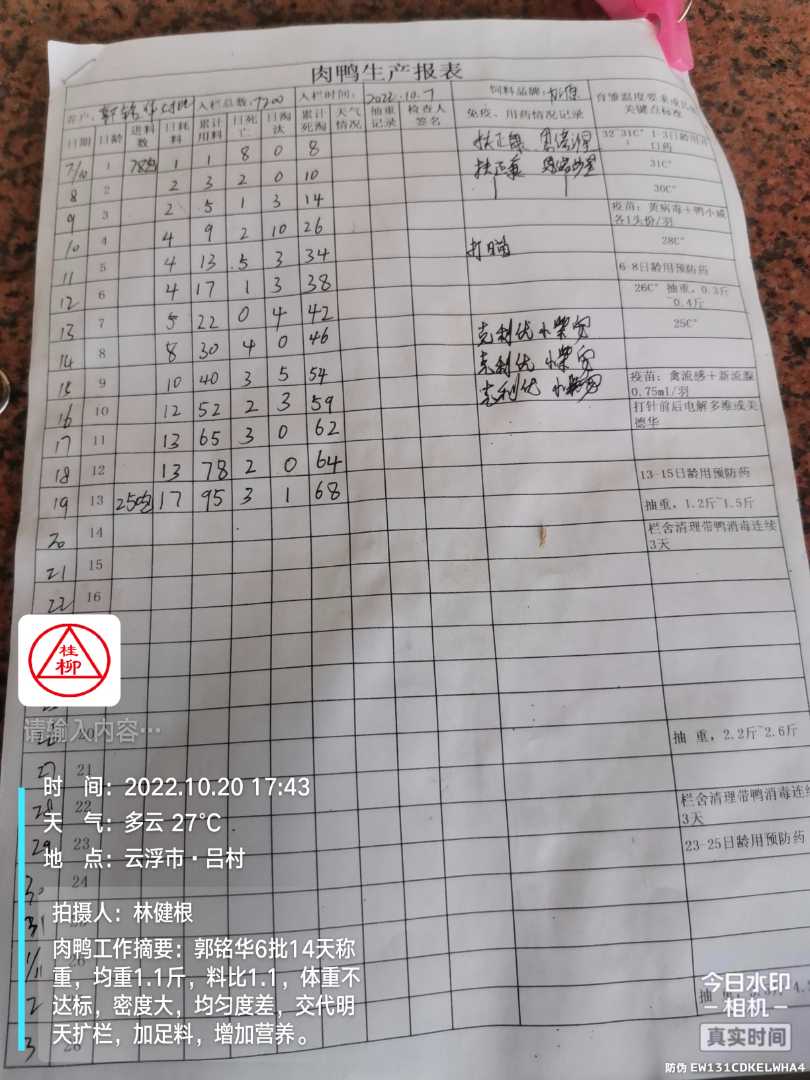 肉鸭生产报表
客户: 郭铭华 入栏总数: 7200 入栏时间: 2022.10.7 饲料品牌: 育雏温度要求或其他关键点标准
日期 日龄 进料数 日耗料 累计用料 日死亡 日淘汰 累计死淘 天气情况 抽重记录 检查人签名 免疫、用药情况记录
7/10 1 78包 1 1 8 0 8 32~31C° 1-3日龄用开口药
8 2 2 3 2 0 10 31C°
9 3 2 5 1 3 14 30C°
10 4 4 9 2 10 26 疫苗: 黄病毒+鸭小减各1头份/羽
11 5 4 13 5 3 34 打苗 28C°
12 6 4 17 1 3 38 6-8日龄用预防药
13 7 5 22 0 4 42 26C° 抽重, 0.3斤~0.4斤
14 8 8 30 4 0 46 克利优 小柴 25C°
15 9 10 40 3 5 54 克利优 小柴
16 10 12 52 2 3 59 克利优 小柴 疫苗: 禽流感+新流腺0.75ml/羽
17 11 13 65 3 0 62 打针前后电解多维或美德华
18 12 13 78 2 0 64
19 13 250包 17 95 3 1 68 13-15日龄用预防药
20 14 抽重, 1.2斤~1.5斤
21 15 栏舍清理带鸭消毒连续3天
22 16
桂柳
请输入内容…
20 抽 重, 2.2斤~2.6斤
27 21
28 22
29 23 栏舍清理带鸭消毒连续3天
30 24 23-25日龄用预防药
31
1/11
2
3
时 间: 2022.10.20 17:43
天 气: 多云 27℃
地 点: 云浮市·吕村
拍摄人: 林健根
肉鸭工作摘要: 郭铭华6批14天称
重，均重1.1斤，料比1.1，体重不
达标，密度大，均匀度差，交代明
天扩栏，加足料，增加营养。
今日水印
相机
真实时间
防伪 EW131CDKELWHA4